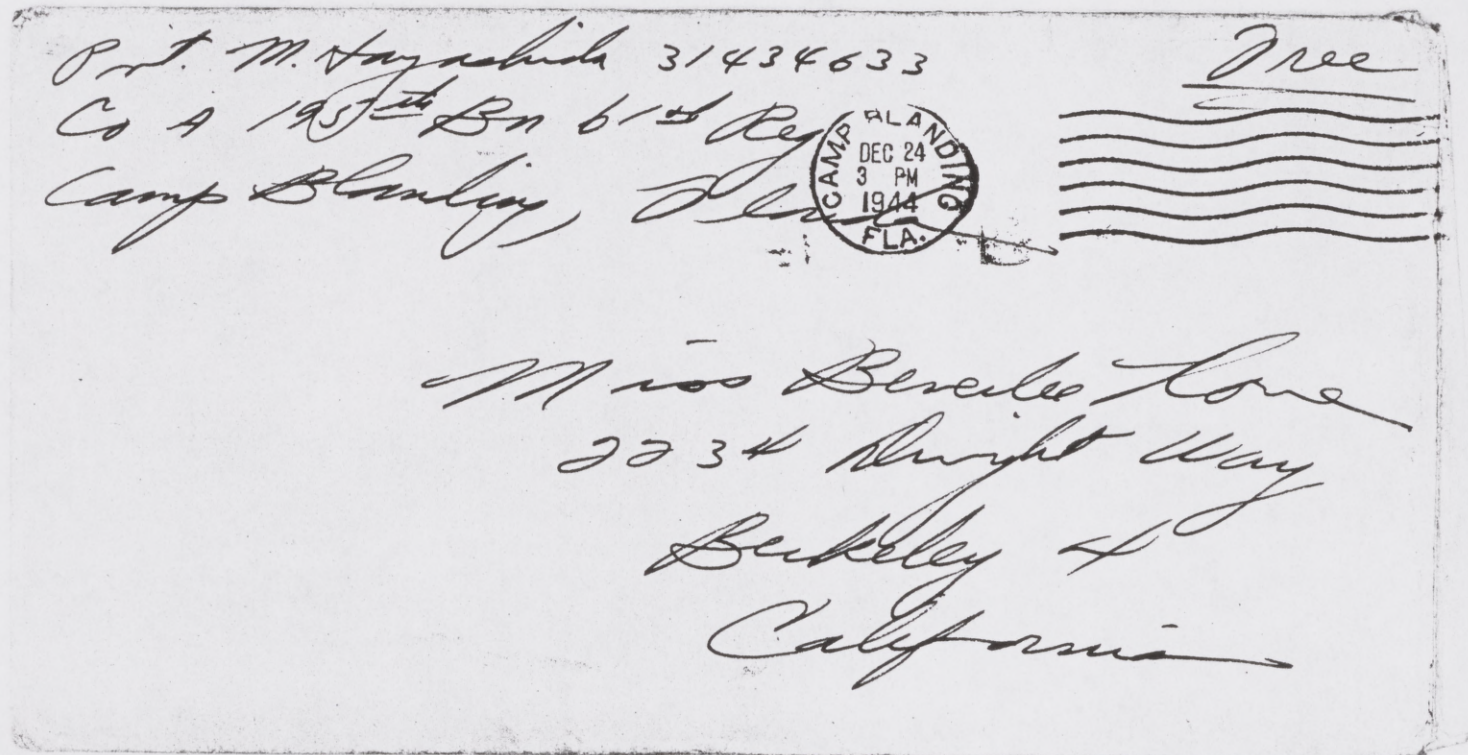 Pvt. M. Hayashida 31434633
Free
Co A 195th Bn 61st Reg
Camp Blanding, Fla
CAMP BLANDING
DEC 24
3 PM
1944
FLA.
Miss
2234 Dwight Way
Berkeley 4
California